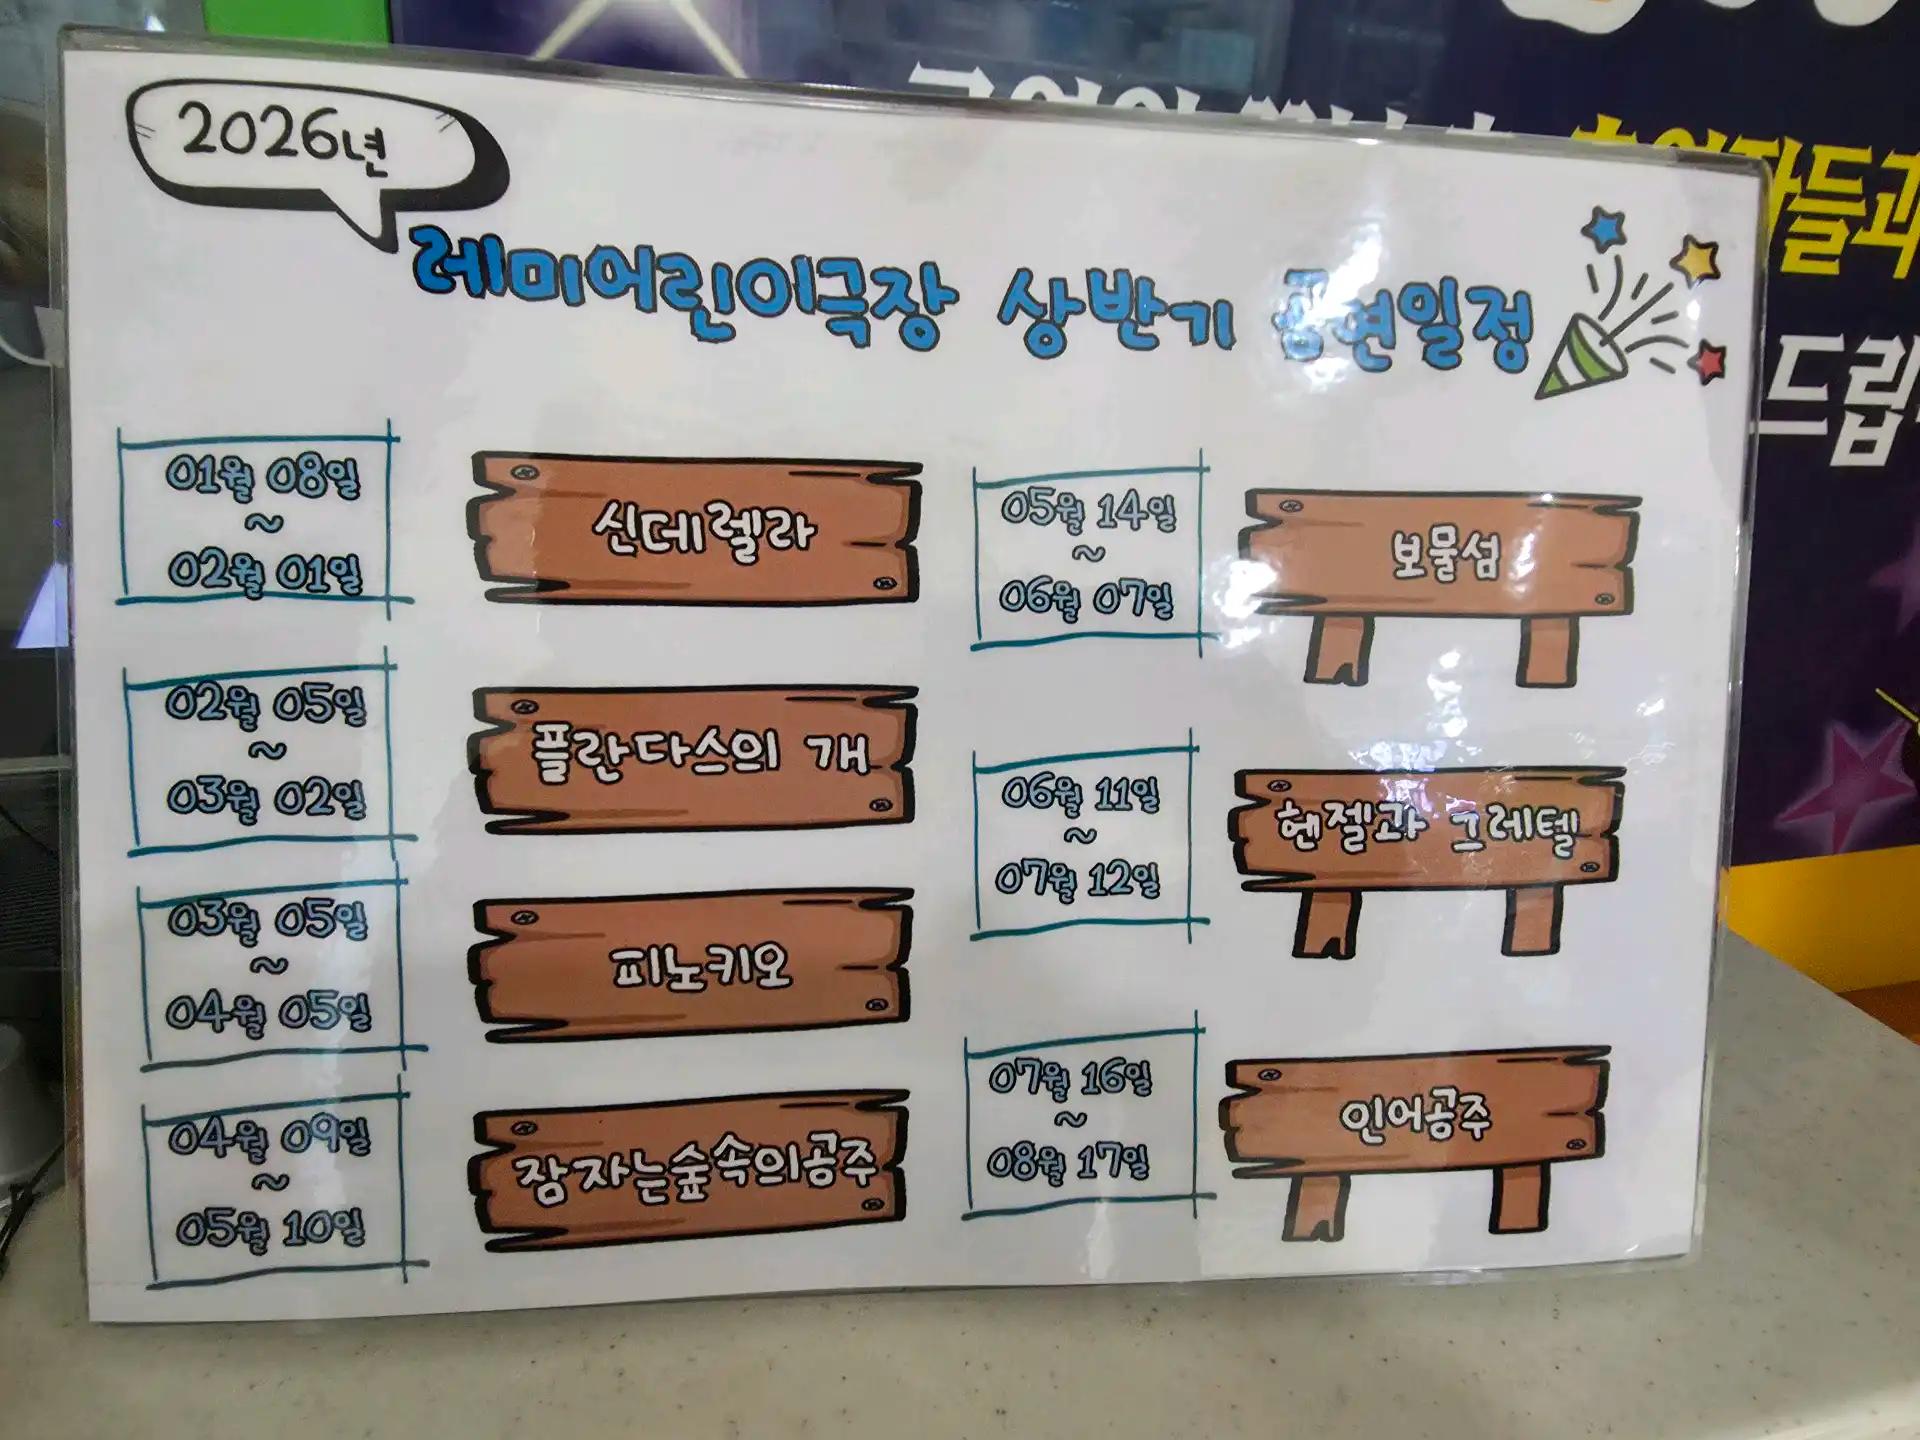 2026년
레미어린이극장 상반기 공연일정
01월 08일
~
02월 01일
신데렐라
02월 05일
~
03월 02일
플란다스의 개
03월 05일
~
04월 05일
피노키오
04월 09일
~
05월 10일
잠자는숲속의공주
05월 14일
~
06월 07일
보물섬
06월 11일
~
07월 12일
헨젤과 그레텔
07월 16일
~
08월 17일
인어공주
들과
드립